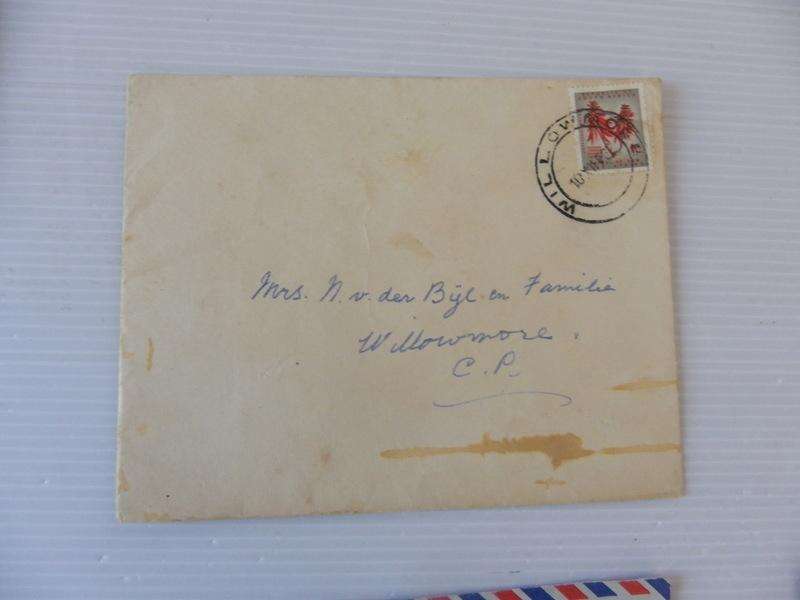 WILLOWMO
10 XII
Mrs. N. v. der Bijl en Familie
Willowmore.
C. P.